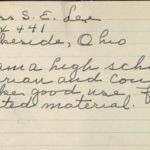 ss S. E. Lee
x 441
keside, Ohio
am a high scho
rian and cou
kes good use
ted material.